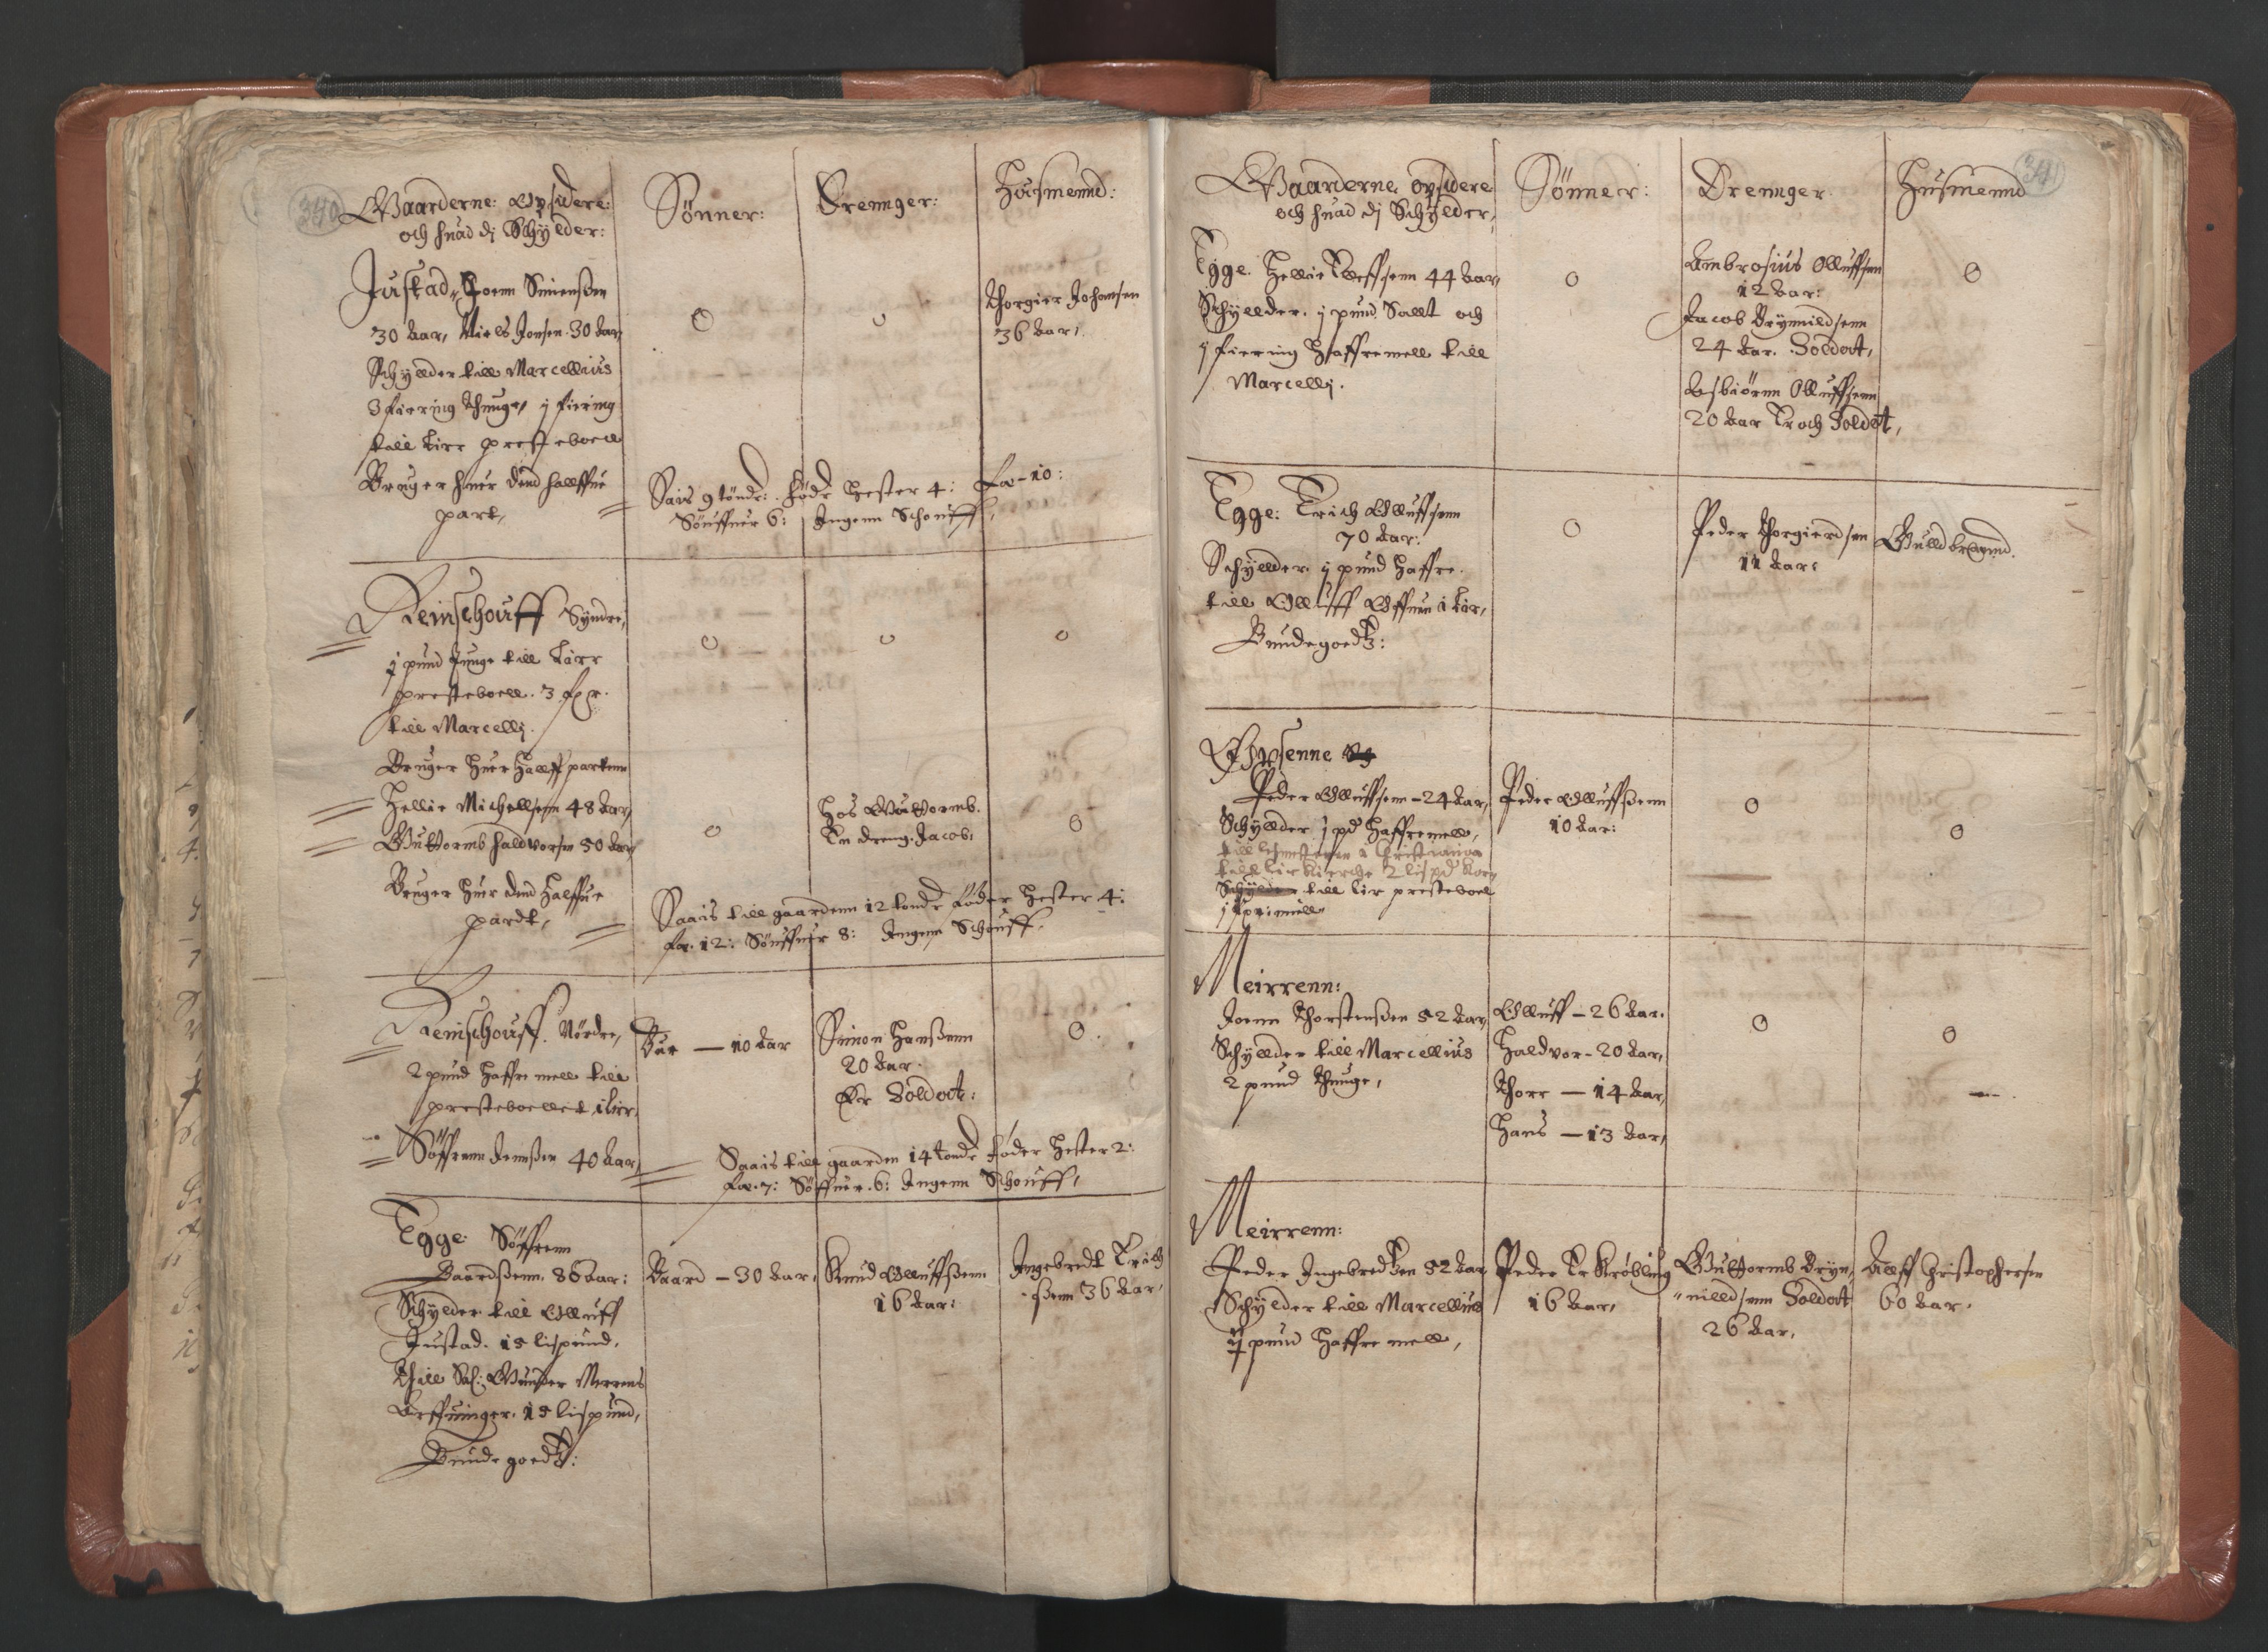 340
Gaarderne: Opsidere:
och huad dj Schÿlder:
Sönner:
Drennger:
Huusmennd:
Justad, Joenn Simenßen
30 Aar, Niels Jonsen 30 Aar,
Schÿllder till Marcellius
3 fiering Thunge, j fiering
till Lier presteboell
Bruger huer dend halffue
part,
o
o
Thorgier Johansen
36 Aar,
Saais 9 tönder: föder Hester 4: fæ-10:
Söuffuer 6: Ingenn Schouff,
Reinschouff Sÿndre,
j pund Tunge till Lier
presteboell. 3
till Marcellj.
Bruger huer Hallff partenn
Hellie Michellsenn 48 Aar,
Guttormb haldvorsen 50 Aar,
Bruger huer dend Halffue
pardt,
o
o
o
o
Hos Guttormb.
En dreng. Jacob,
o
Saais till gaardenn 12 tonder föder Hester 4:
fæ. 12: Söuffuer 8: Ingenn Schouff,
Reinschouff Nördre,
2 pund Haffre mell till
prestebollet i Lier.
Söffrenn Jennßen 40 Aar,
— 10 Aar
Simon Hanßenn
20 Aar.
Er Soldat:
o
Saais till gaarden 14 tonder föder Hester 2:
fæ. 7: Söffuer. 6: Ingenn Schouff,
Egge. Söffrenn
Baardßenn. 86 Aar:
Schÿlder till Olluff
Justad. 15 lispund.
Thill Sal: Gunder Merrens
Arffuinger. 15 lispund,
Bundegoedtz:
Baard — 30 Aar,
Knud Olluffßenn
16 Aar:
Ingebredt Erich
ßenn 36 Aar,
341
Gaarderne opsidere
och huad dj Schÿlder,
Sönner:
Drennger.
Husmennd
Egge. Hellie Elleffsenn 44 Aar,
Schÿllder. j pund Sallt och
j fiering Haffremell till
Marcellj.
o
Ambrosius Olluffsen
12 Aar:
Jacob Brÿnnildsenn
24 Aar. Soldat,
Asbiörnn Olluffsenn
20 Aar Er och Soldat,
o
Egge: Erich Olluffsenn
70 Aar:
Schÿllder. j pund Haffre.
till Olluff i Lier,
Bundegoedtz:
o
Peder Thorgierdsen
11 Aar:
Gulldbrannd.
Peder Olluffsenn — 24 Aar,
Schÿllder j pd Haffremell,
till Lier Kierche 2 lispd
till Lier presteboel
Peder Olluffßenn
10 Aar:
o
o
Meirrenn:
Joenn Thorstenßen 52 Aar,
Schÿllder till Marcellius
2 pund Thunge,
Olluff — 26 Aar.
Haldvor — 20 Aar,
Thore — 14 Aar,
Hans — 13 Aar,
o
o
Meirrenn:
Peder Ingebredtzen 52 Aar
Schÿlder till Marcellius
ij pund Haffre mell,
Peder Er Kröbling
16 Aar,
Guttormb Brÿn,
nilldsenn Soldat
26 Aar,
Alff Christophersen
60 Aar.